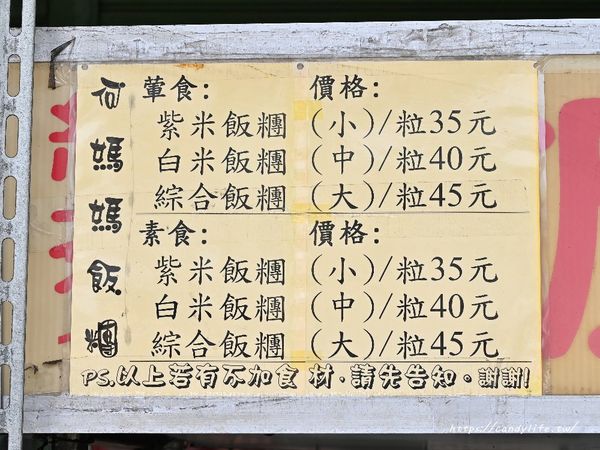 何媽媽飯糰
葷食: 價格:
紫米飯糰 (小)/粒35元
白米飯糰 (中)/粒40元
綜合飯糰 (大)/粒45元
素食: 價格:
紫米飯糰 (小)/粒35元
白米飯糰 (中)/粒40元
綜合飯糰 (大)/粒45元
PS.以上若有不加食材,請先告知。謝謝!
https://candylife.tw/